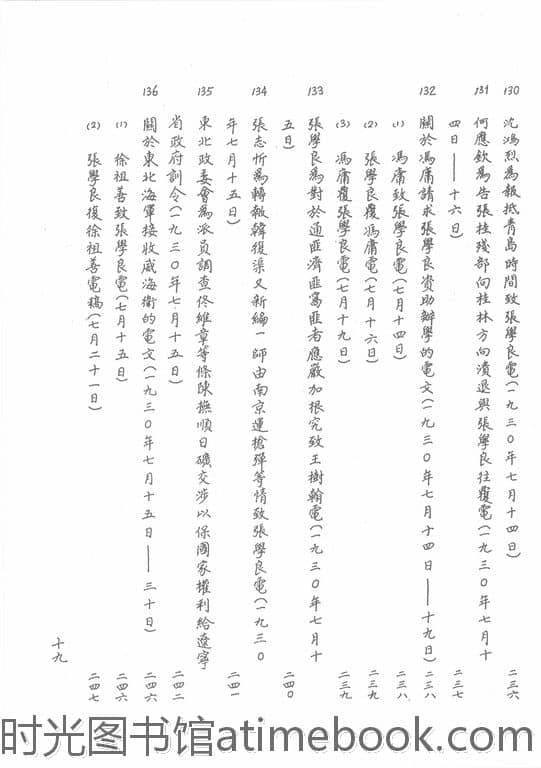 130 沈鴻烈為報抵青島時間致張學良電(一九三〇年七月十四日) 二三六
131 何應欽為告張桂殘部向桂林方向潰退與張學良往覆電(一九三〇年七月十
四日——十六日) 二三七
132 關於馮庸請求張學良資助辦學的電文(一九三〇年七月十四日——十九日) 二三八
(1) 馮庸致張學良電(七月十四日) 二三八
(2) 張學良覆馮庸電(七月十六日) 二三九
(3) 馮庸覆張學良電(七月十九日) 二三九
133 張學良為對於通匪濟匪窩匪者應嚴加根究致王樹翰電(一九三〇年七月十
五日) 二四〇
134 張志忻為轉報韓復渠又新編一師由南京運槍彈等情致張學良電(一九三〇
年七月十五日) 二四一
135 東北政委會為派員調查佟維章等條陳撫順日礦交涉以保國家權利給遼寧
省政府訓令(一九三〇年七月十五日) 二四二
136 關於東北海軍接收威海衛的電文(一九三〇年七月十五日——三十日) 二四六
(1) 徐祖善致張學良電(七月十五日) 二四六
(2) 張學良復徐祖善電稿(七月二十一日) 二四七
十九
时光图书馆atimebook.com